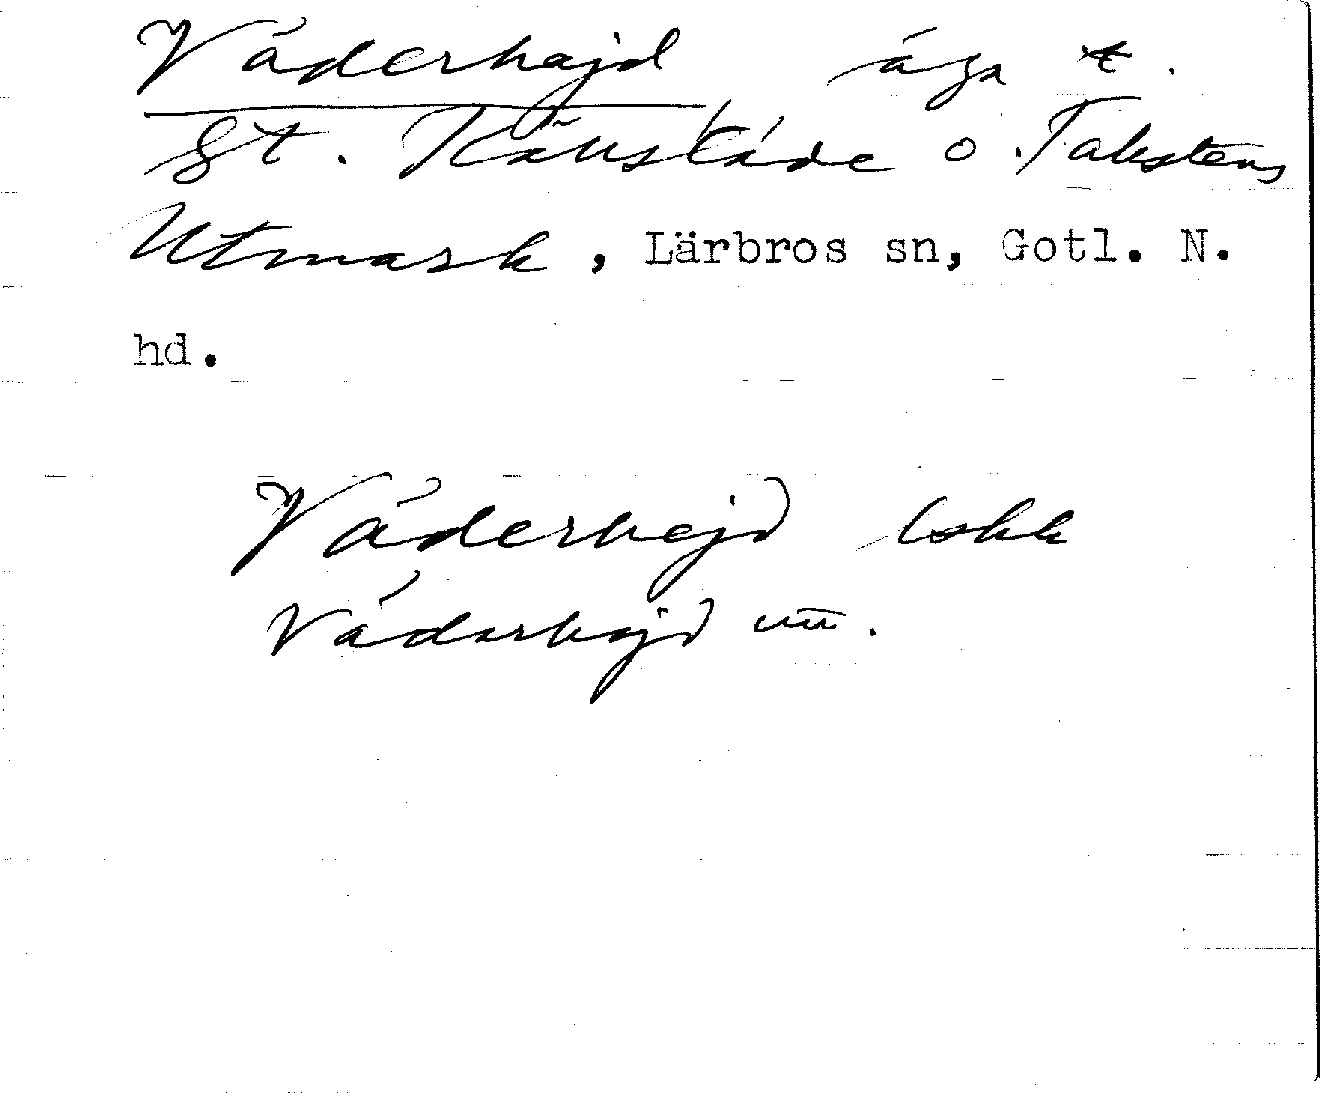 Väderhajd äga t.
St. Källstäde o. Takstens
Utmark, Lärbros sn, Gotl. N.
hd.
Väderhejd lskk
Väderhajd uu.